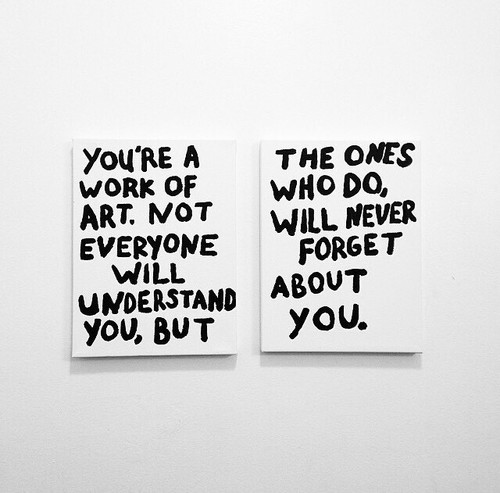 YOU'RE A
WORK OF
ART. NOT
EVERYONE
WILL
UNDERSTAND
YOU, BUT
THE ONES
WHO DO,
WILL NEVER
FORGET
ABOUT
YOU.